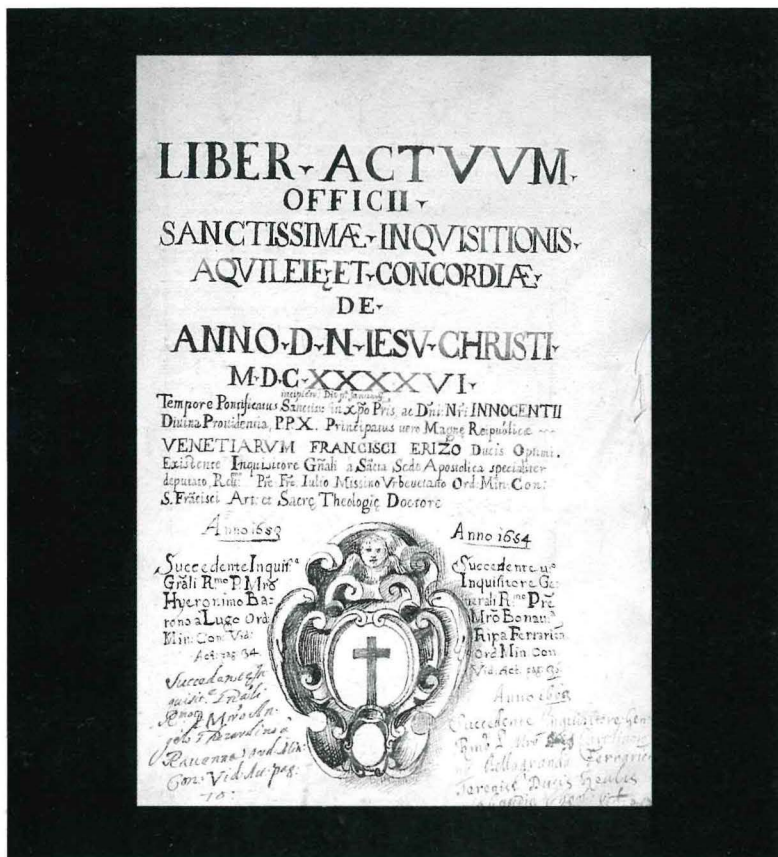 LIBER ACTVVM
OFFICII
SANCTISSIMÆ INQVISITIONIS
AQVILEIĘ ET CONCORDIÆ
DE
ANNO D N IESV CHRISTI
M·D·C·XXXXVI·
Tempore Pontificatus Sanctiss: in xp̃o Pris, ac Dñi Nr̃i INNOCENTII
Divina Providentia, P.P.X. Principatus uero Magnę Reipublicæ
VENETIARVM FRANCISCI ERIZO Ducis Optimi.
Existente Inquisitore Gñali a Sãcta Sede Apostolica specialiter
deputato, Pr̃e Fr̃e Iulio Missino Vrbevetano Ord: Min: Con:
S. Frãcisci Art: et Sacrę Theologię Doctore
Anno 1653
Succedente Inquis.
Gñali R.mo P. Mrõ
Hyeronimo Ba=
rono a Lugo Ord
Min: Con: Vid:
Act: pag. 34.
Succedente In=
quisit.e
R.mo P. Mrõ An=
gelo
Rauenna Ord. Min:
Con: Vid. Act. pag:
Anno 1654
Succedente
Inquisitore Ge=
nerali R.mo Pr̃e
Mrõ Bonau.ra
Ripa Ferrariẽ
Ord Min Con
Vid. Act. pag.
Anno
Succedente Inquisitore